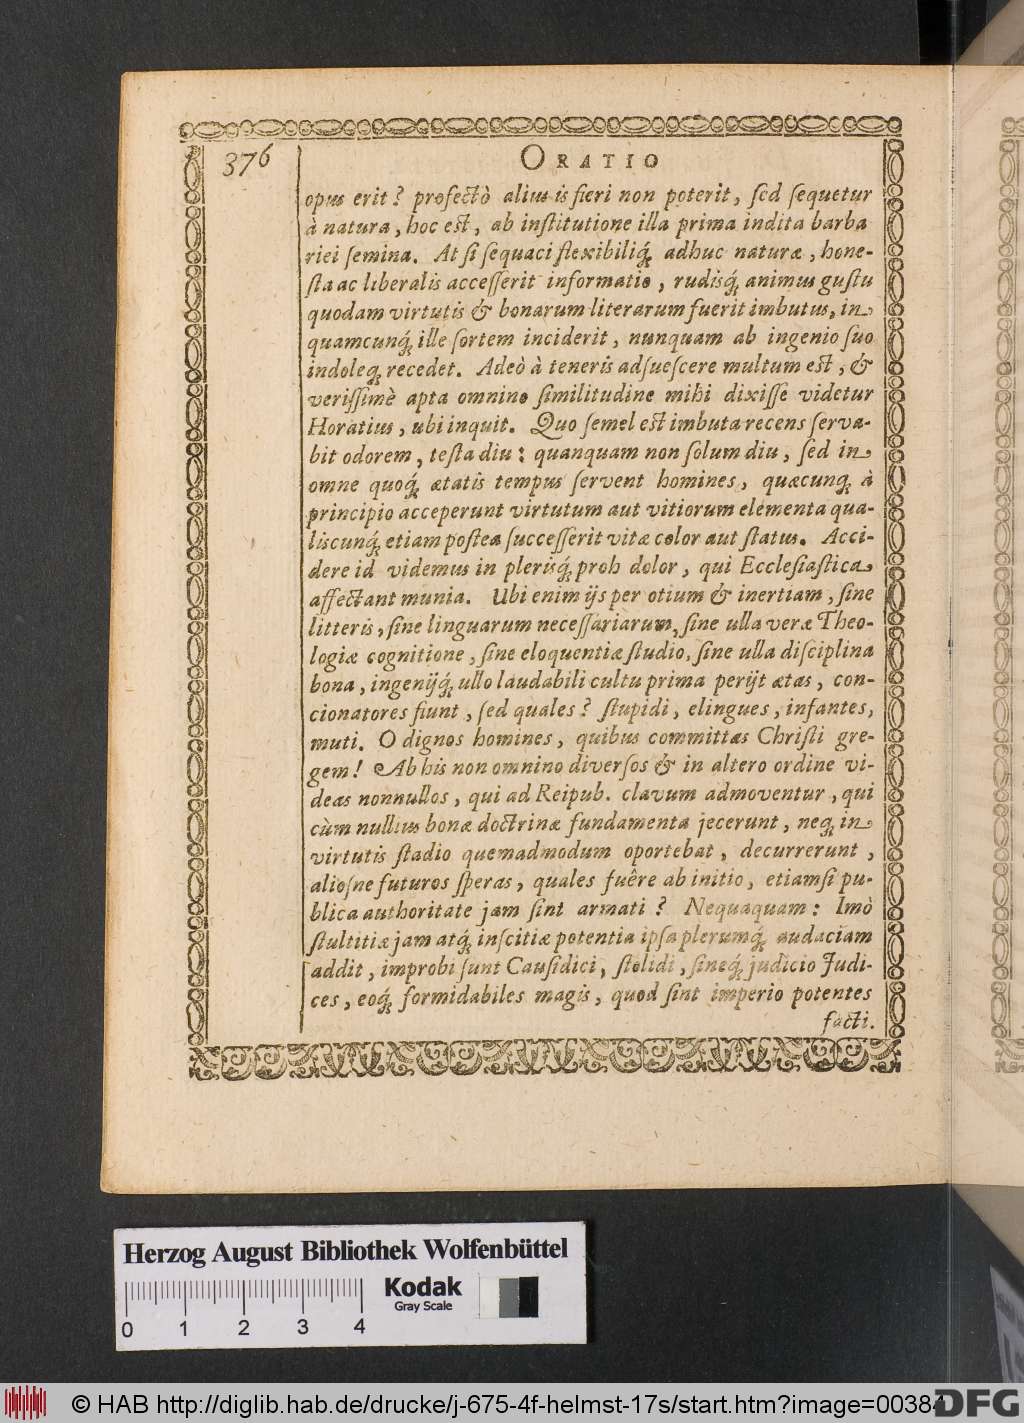 376
ORATIO
opus erit? profectò alius is fieri non poterit, sed sequetur
à natura, hoc est, ab institutione illa prima indita barba
riei semina. At si sequaci flexibiliq́; adhuc naturæ, hone-
sta ac liberalis accesserit informatio, rudisq́; animus gustu
quodam virtutis & bonarum literarum fuerit imbutus, in
quamcunq́; ille sortem inciderit, nunquam ab ingenio suo
indoleq; recedet. Adeò à teneris adsuescere multum est, &
verissimè apta omnino similitudine mihi dixisse videtur
Horatius, ubi inquit. Quo semel est imbuta recens serva-
bit odorem, testa diu: quanquam non solum diu, sed in
omne quoq́; ætatis tempus servent homines, quæcunq; à
principio acceperunt virtutum aut vitiorum elementa qua-
liscunq́; etiam postea successerit vitæ color aut status. Acci-
dere id videmus in plerisq́; proh dolor, qui Ecclesiastica
affectant munia. Ubi enim ijs per otium & inertiam, sine
litteris, sine linguarum necessariarum, sine ulla veræ Theo-
logiæ cognitione, sine eloquentiæ studio, sine ulla disciplina
bona, ingenijq́; ullo laudabili cultu prima perijt ætas, con-
cionatores fiunt, sed quales? stupidi, elingues, infantes,
muti. O dignos homines, quibus committas Christi gre-
gem! Ab his non omnino diversos & in altero ordine vi-
deas nonnullos, qui ad Reipub. clavum admoventur, qui
cùm nullius bonæ doctrinæ fundamenta jecerunt, neq; in
virtutis stadio quemadmodum oportebat, decurrerunt,
aliosne futuros speras, quales fuêre ab initio, etiamsi pu-
blica authoritate jam sint armati? Nequaquam: Imò
stultitiæ jam atq́; inscitiæ potentia ipsa plerumq́; audaciam
addit, improbi sunt Causidici, stolidi, sineq́; judicio Judi-
ces, eoq́; formidabiles magis, quod sint imperio potentes
facti.
Herzog August Bibliothek Wolfenbüttel
Kodak
Gray Scale
0 1 2 3 4
© HAB http://diglib.hab.de/drucke/j-675-4f-helmst-17s/start.htm?image=00384
DFG